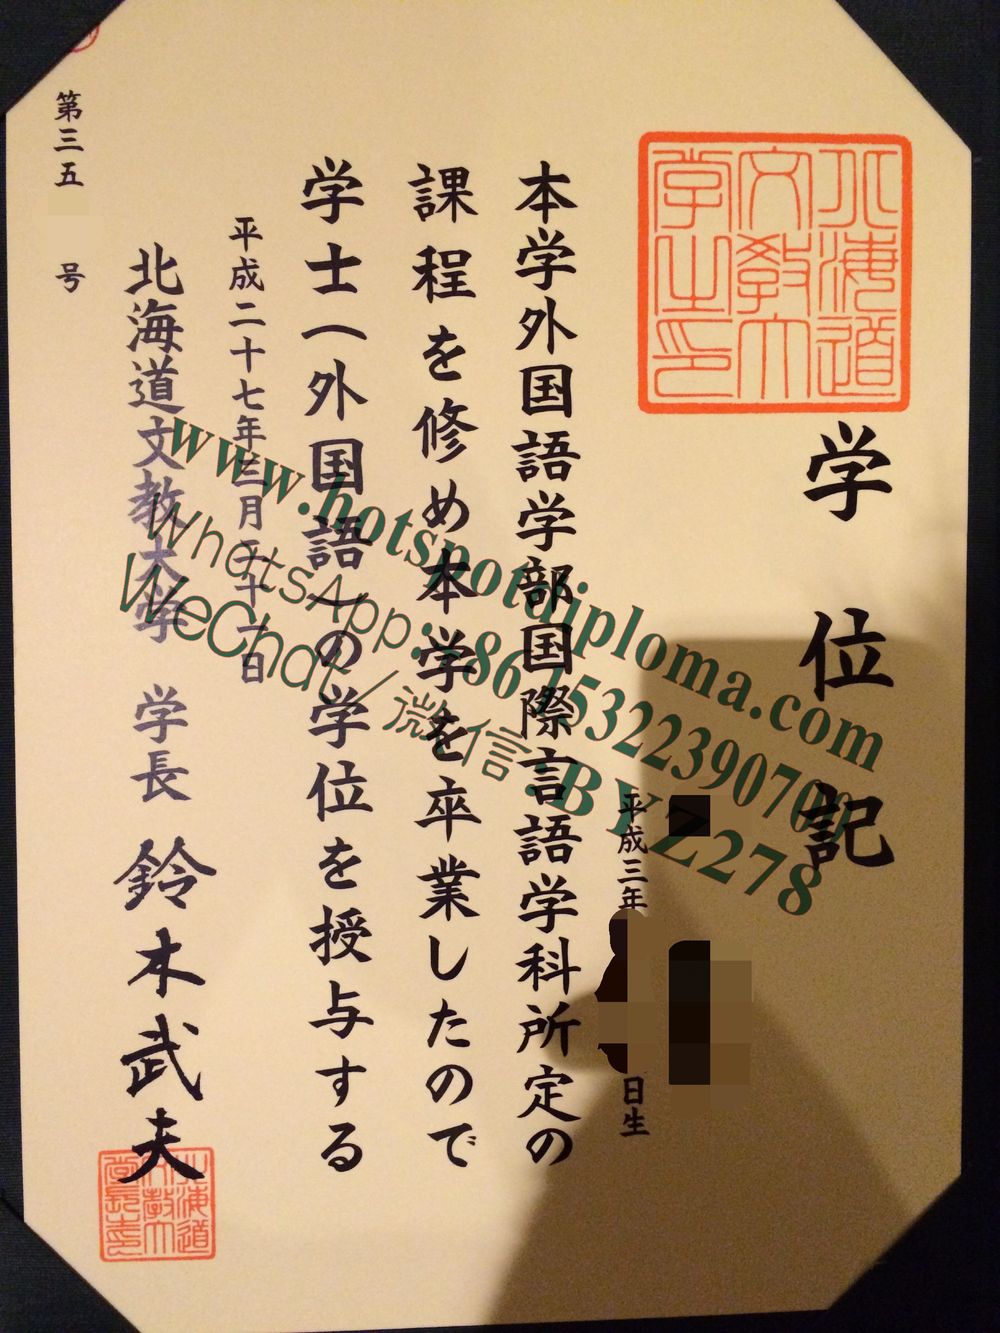 北海道
文教大
学之印
学位記
平成三年
日生
本学外国語学部国際言語学科所定の
課程を修め本学を卒業したので
学士(外国語)の学位を授与する
平成二十七年三月二十
日
北海道文教大学 学長 鈴木武夫
第三五
号
www.hotspotdiploma.com
WhatsApp:+86 153223907
WeChat/微信:BYZ278